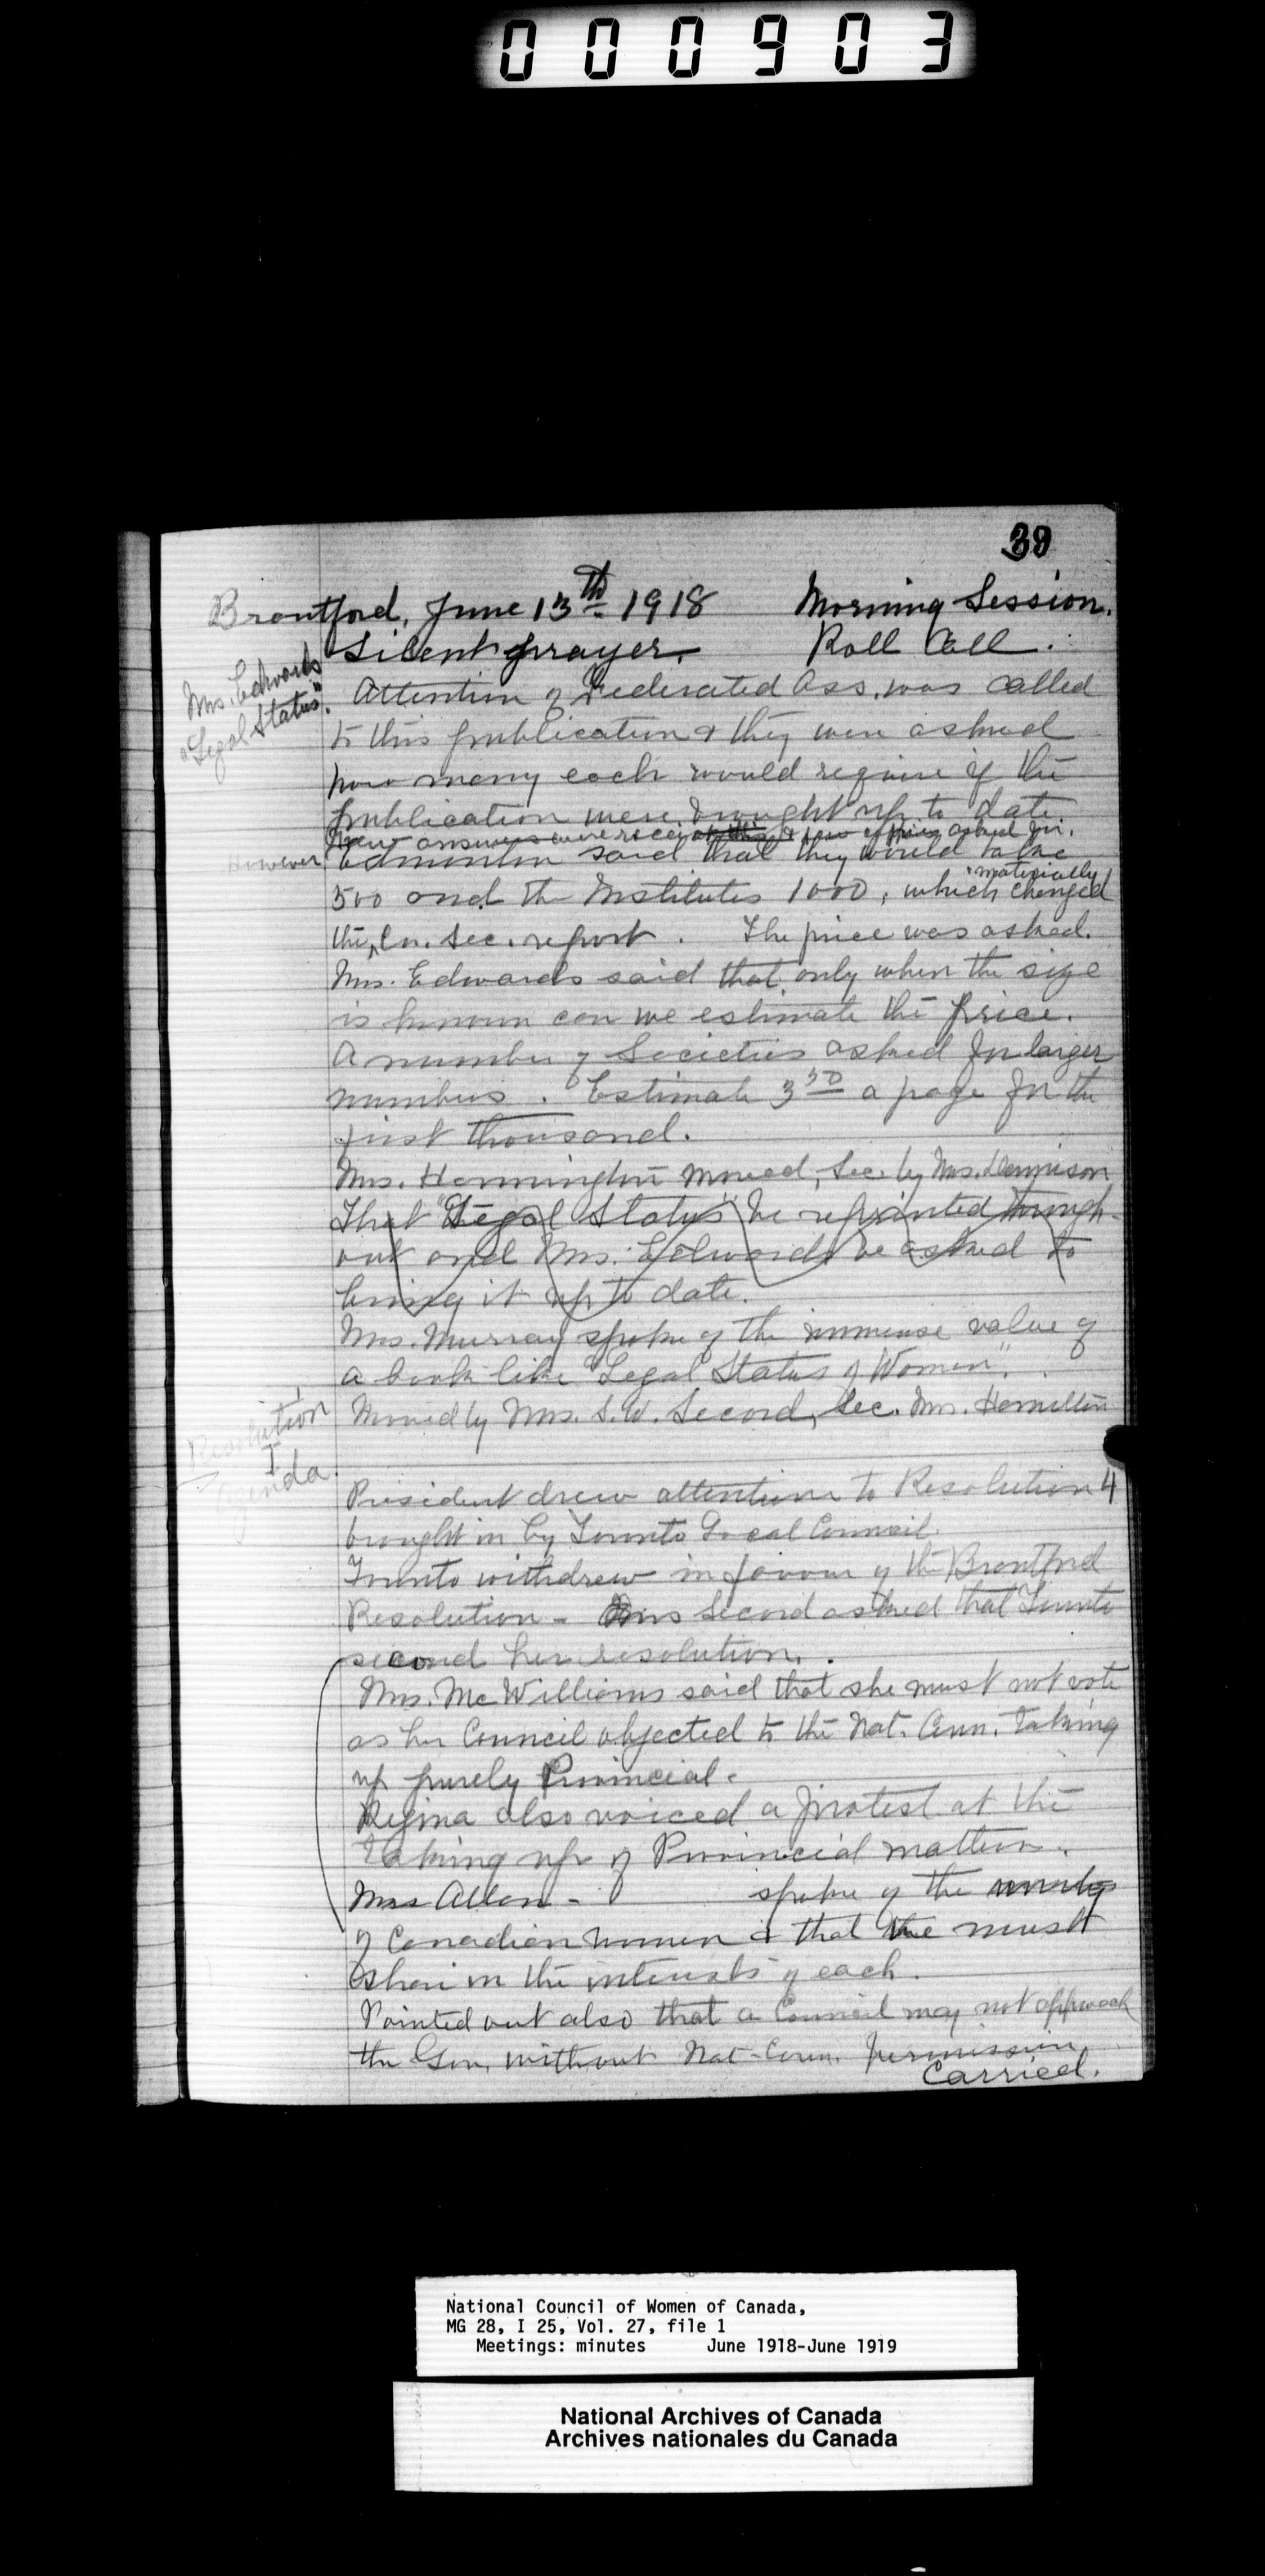 000903
39
Brantford, June 13th 1918 Morning Session.
Silent prayer. Roll Call.
Mrs. Edwards
"Legal Status".
Attention of Federated Ass. was called
to this publication & they were asked
how many each would require if the
publication were brought up to date
Few answers were received & few copies asked for.
However Edmonton said that they would take
500 and the Institutes 1000, which materially changed
the Cor. Sec. report. The price was asked.
Mrs. Edwards said that only when the size
is known can we estimate the price.
A number of Societies asked for larger
numbers. Estimate 3 50 a page for the
first thousand.
Mrs. Hannington moved, Sec. by Mrs. Dennison
That "Legal Status" be reprinted through-
out and Mrs. Edwards be asked to
bring it up to date.
Mrs. Murray spoke of the immense value of
a book like "Legal Status of Women".
Resolution
I
Agenda.
Moved by Mrs. S.W. Secord, Sec. Mrs. Hamilton
President drew attention to Resolution 4
brought in by Toronto Local Council.
Toronto withdrew in favour of the Brantford
Resolution - Mrs Secord asked that Toronto
second her resolution.
Mrs. McWilliams said that she must not vote
as her Council objected to the Nat. Coun. taking
up purely Provincial.
Regina also voiced a protest at the
taking up of Provincial matters.
Mrs Allan - spoke of the
of Canadian women & that we must
share in the interests of each.
Pointed out also that a Council may not approach
the Gov. without Nat-Coun. permission
Carried.
National Council of Women of Canada,
MG 28, I 25, Vol. 27, file 1
Meetings: minutes June 1918-June 1919
National Archives of Canada
Archives nationales du Canada